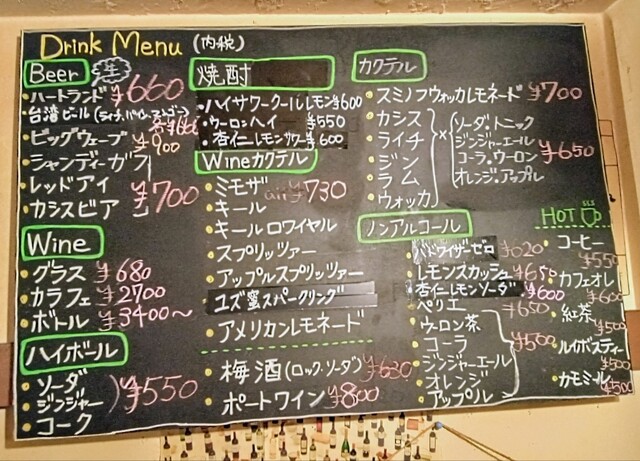 Drink Menu (内税)
Beer 生
ハートランド ¥660
台湾ビール (ライチ、パイン、マンゴー)
各¥660
ビッグウェーブ ¥900
シャンディーガフ
レッドアイ ¥700
カシスビア
Wine
グラス ¥680
カラフェ ¥2700
ボトル ¥3400〜
ハイボール
ソーダ
ジンジャー ¥550
コーク
焼酎
・ハイサワークールレモン ¥600
・ウーロンハイ ¥550
・杏仁レモンサワー ¥600
Wineカクテル
ミモザ all ¥730
キール
キールロワイヤル
スプリッツァー
アップルスプリッツァー
ユズ蜜スパークリング
アメリカンレモネード
梅酒(ロック・ソーダ) ¥630
ポートワイン ¥800
カクテル
スミノフウォッカレモネード ¥700
カシス
ライチ
ジン
ラム
ウォッカ
×
ソーダ・トニック
ジンジャーエール
コーラ・ウーロン
オレンジ・アップル
¥650
ノンアルコール
バドワイザーゼロ ¥620
レモンスカッシュ ¥650
杏仁レモンソーダ ¥600
ペリエ ¥650
ウーロン茶
コーラ ¥500
ジンジャーエール
オレンジ
アップル
HOT
コーヒー ¥550
カフェオレ ¥600
紅茶 ¥500
ルイボスティー ¥500
カモミール ¥500